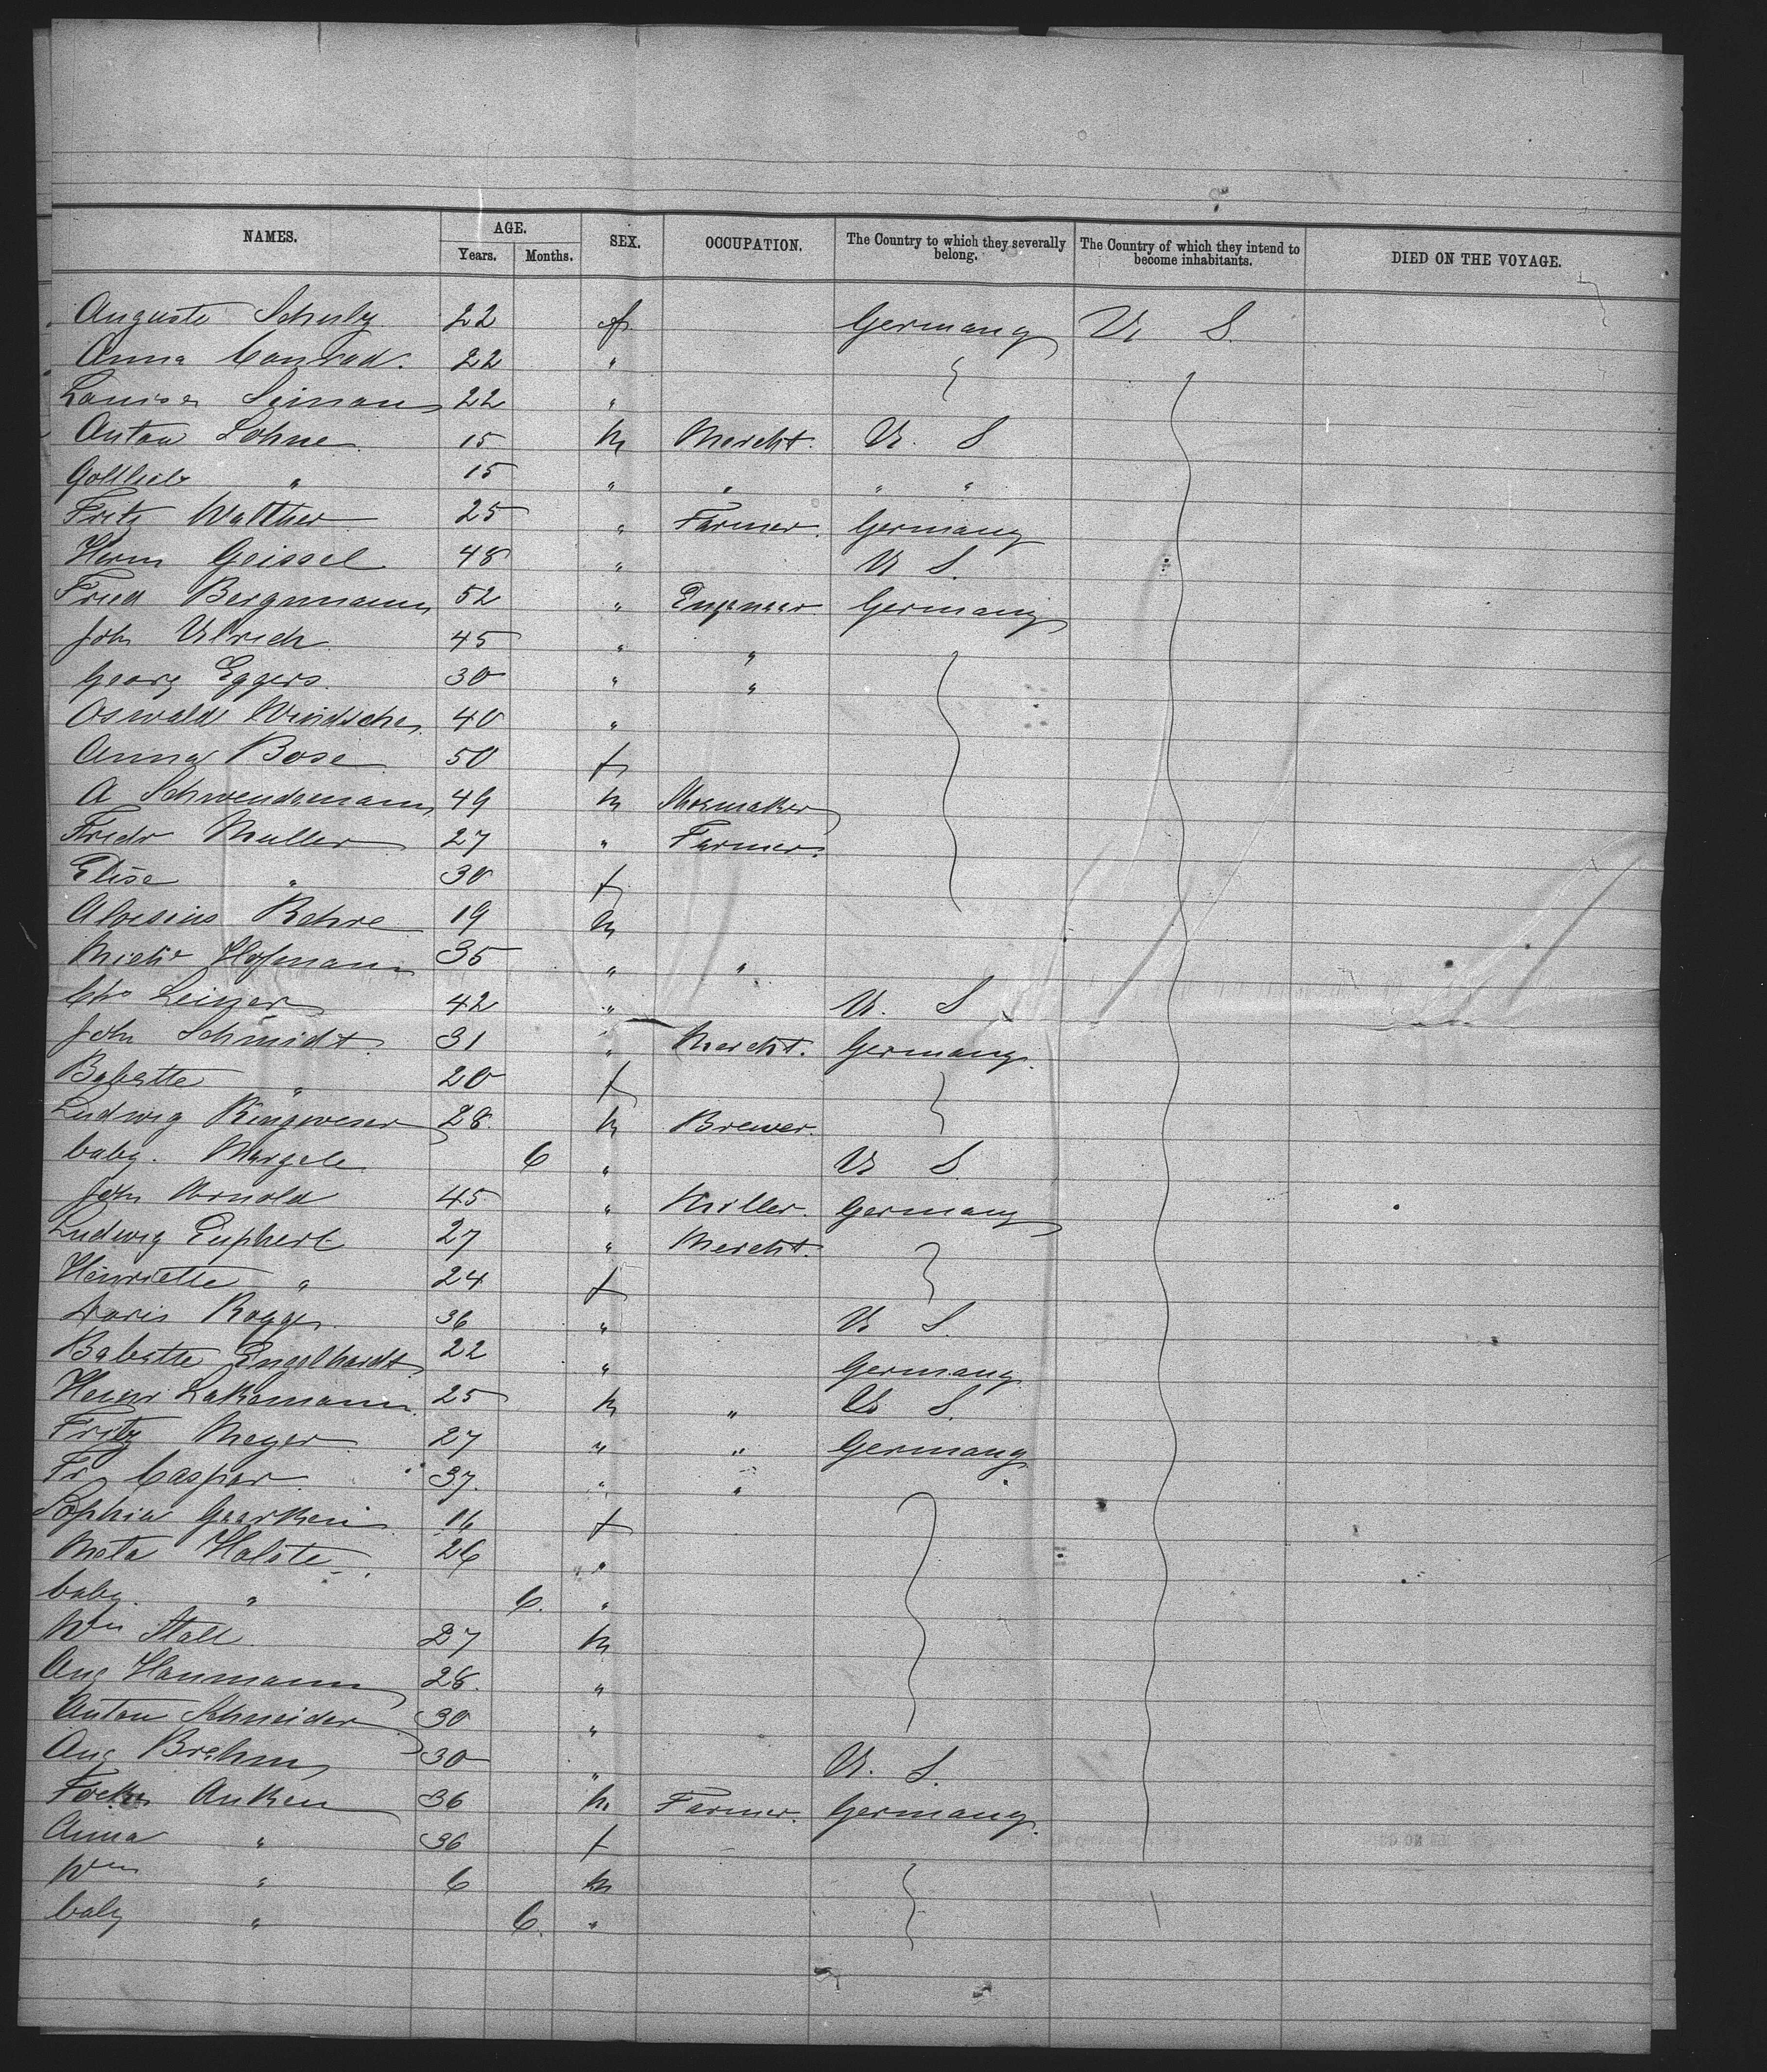 NAMES. AGE. SEX. OCCUPATION. The Country to which they severally belong. The Country of which they intend to become inhabitants. DIED ON THE VOYAGE.
Years. Months.
Auguste Schulz 22 f Germany U S.
Anna Conrad. 22 "
Louise 22 "
Anton Lohne 15 m Mercht. U. S
Gottlieb " 15 " " " "
Fritz Walther 25 " Farmer. Germany
Herm Geissel 48 " U S.
Fried Bergmann 52 " Engeneer Germany
Joh Ulrich 45 " "
Georg Eggers. 30 " "
Oswald 40 "
Anna Bose 50 f
A Schwendemann 49 m Shoemaker
Friedr Muller 27 " Farmer.
Elise " 30 f
Aloesius Rehre 19 m
Hofmann 35 " "
Chr 42 " U. S
Joh Schmidt 31 " Mercht. Germany.
Babette " 20 f
Ludwig 28. m Brewer.
baby. 6 " U S
Joh Arnold 45 " Miller. Germany
Ludwig Euphert 27 " Mercht.
Henriette " 24 f
Doris 36 " U S.
Babette Engelhardt 22 " Germany
Lakemann 25 m " U S.
Fritz Meyer 27 " " Germany
Fr Caspar 37. " "
Sophia 16 f
Meta Halste 26 "
baby. " 6. "
Wm Stall 27 m
Aug Hanmann 28. "
Anton Schneider 30 "
Aug Brahm 30 " U. S.
Anken 36 m Farmer. Germany.
Anna " 36 f
Wm " 6 m
baby " 6. "